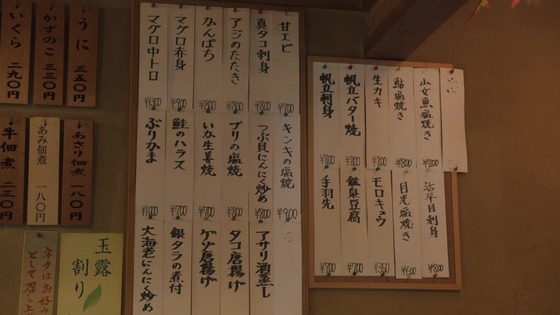 甘エビ ¥700
真タコ刺身 ¥800
アジのたたき ¥800
かんぱち ¥800
マグロ赤身 ¥900
マグロ中トロ ¥1300
キンキの塩焼 ¥900
つぶ貝にんにく炒め ¥800
ブリの塩焼 ¥800
いか生姜焼 ¥800
鮭のハラス ¥700
ぶりかま ¥1000
アサリ酒蒸し
タコ唐揚げ
ゲソ唐揚げ
銀タラの煮付
大海老にんにく炒め
山女魚塩焼き ¥800
鮎塩焼き ¥800
生カキ ¥800
帆立バター焼 ¥800
帆立刺身 ¥800
活平目刺身 ¥800
目光塩焼き ¥600
モロキュウ ¥350
鉱泉豆腐 ¥700
手羽先 ¥700
うに 三五〇円
かずのこ 三三〇円
いくら 二九〇円
あさり佃煮 一八〇円
あみ佃煮 一八〇円
牛佃煮 二三〇円
玉露割り
ネタはお好み
として召し